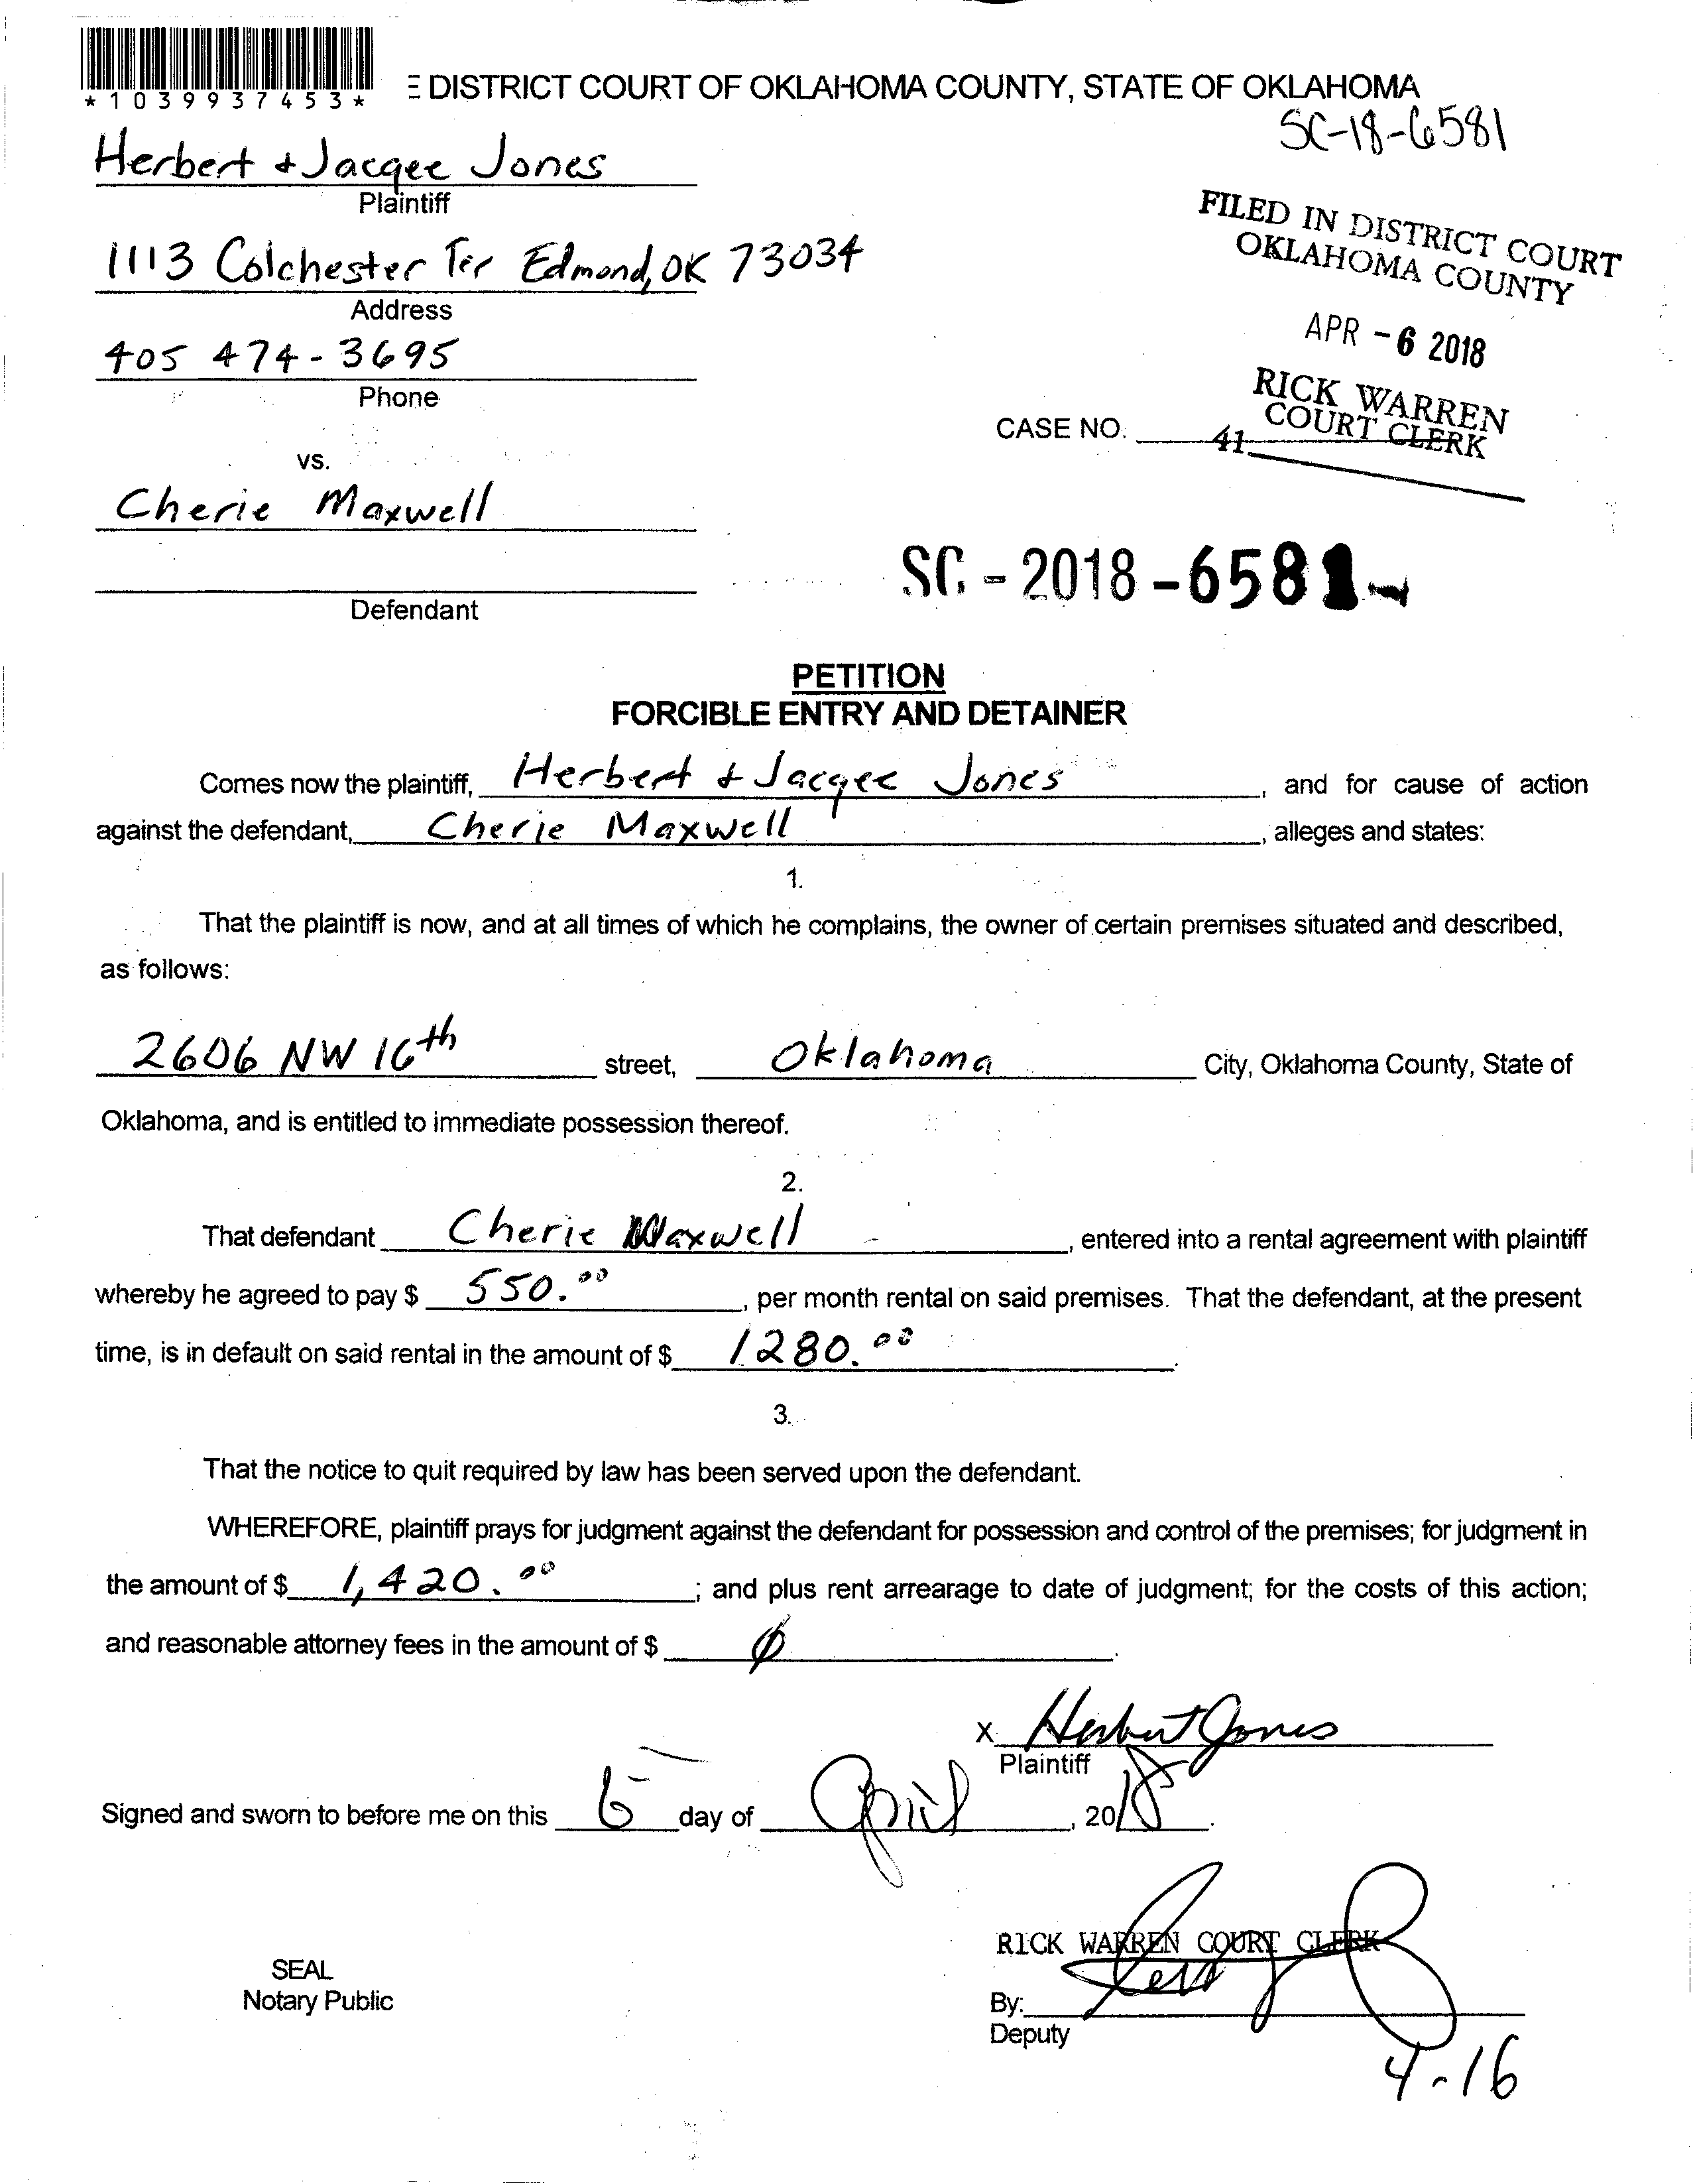 *1039937453*
E DISTRICT COURT OF OKLAHOMA COUNTY, STATE OF OKLAHOMA
SC-18-6581
Herbert + Jacqee Jones
Plaintiff
1113 Colchester Ter Edmond, OK 73034
Address
405 474-3695
Phone
FILED IN DISTRICT COURT
OKLAHOMA COUNTY
APR -6 2018
RICK WARREN
COURT CLERK
CASE NO.
41
vs.
Cherie Maxwell
Defendant
SC - 2018 - 6581
PETITION
FORCIBLE ENTRY AND DETAINER
Comes now the plaintiff, Herbert + Jacqee Jones, and for cause of action
against the defendant, Cherie Maxwell, alleges and states:
1.
That the plaintiff is now, and at all times of which he complains, the owner of certain premises situated and described,
as follows:
2606 NW 16th street, Oklahoma City, Oklahoma County, State of
Oklahoma, and is entitled to immediate possession thereof.
2.
That defendant Cherie Maxwell, entered into a rental agreement with plaintiff
whereby he agreed to pay $ 550.00, per month rental on said premises. That the defendant, at the present
time, is in default on said rental in the amount of $ 1280.00.
3.
That the notice to quit required by law has been served upon the defendant.
WHEREFORE, plaintiff prays for judgment against the defendant for possession and control of the premises; for judgment in
the amount of $ 1,420.00; and plus rent arrearage to date of judgment; for the costs of this action;
and reasonable attorney fees in the amount of $ ∅.
X Herbert Jones
Plaintiff
Signed and sworn to before me on this 6 day of April, 2018.
RICK WARREN COURT CLERK
SEAL
Notary Public
By:
Deputy
4-16